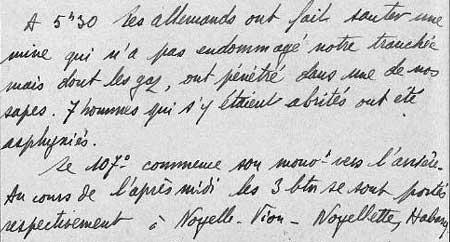 A 5h30 les allemands ont fait sauter une
mine qui n'a pas endommagé notre tranchée
mais dont les gaz, ont pénétré dans une de nos
sapes. 7 hommes qui s'y étaient abrités ont été
asphyxiés.
Le 107e commence son mouvt vers l'arrière.
Au cours de l'après midi les 3 btns se sont portés
respectivement à Noyelle-Vion - Noyellette, Habarcq